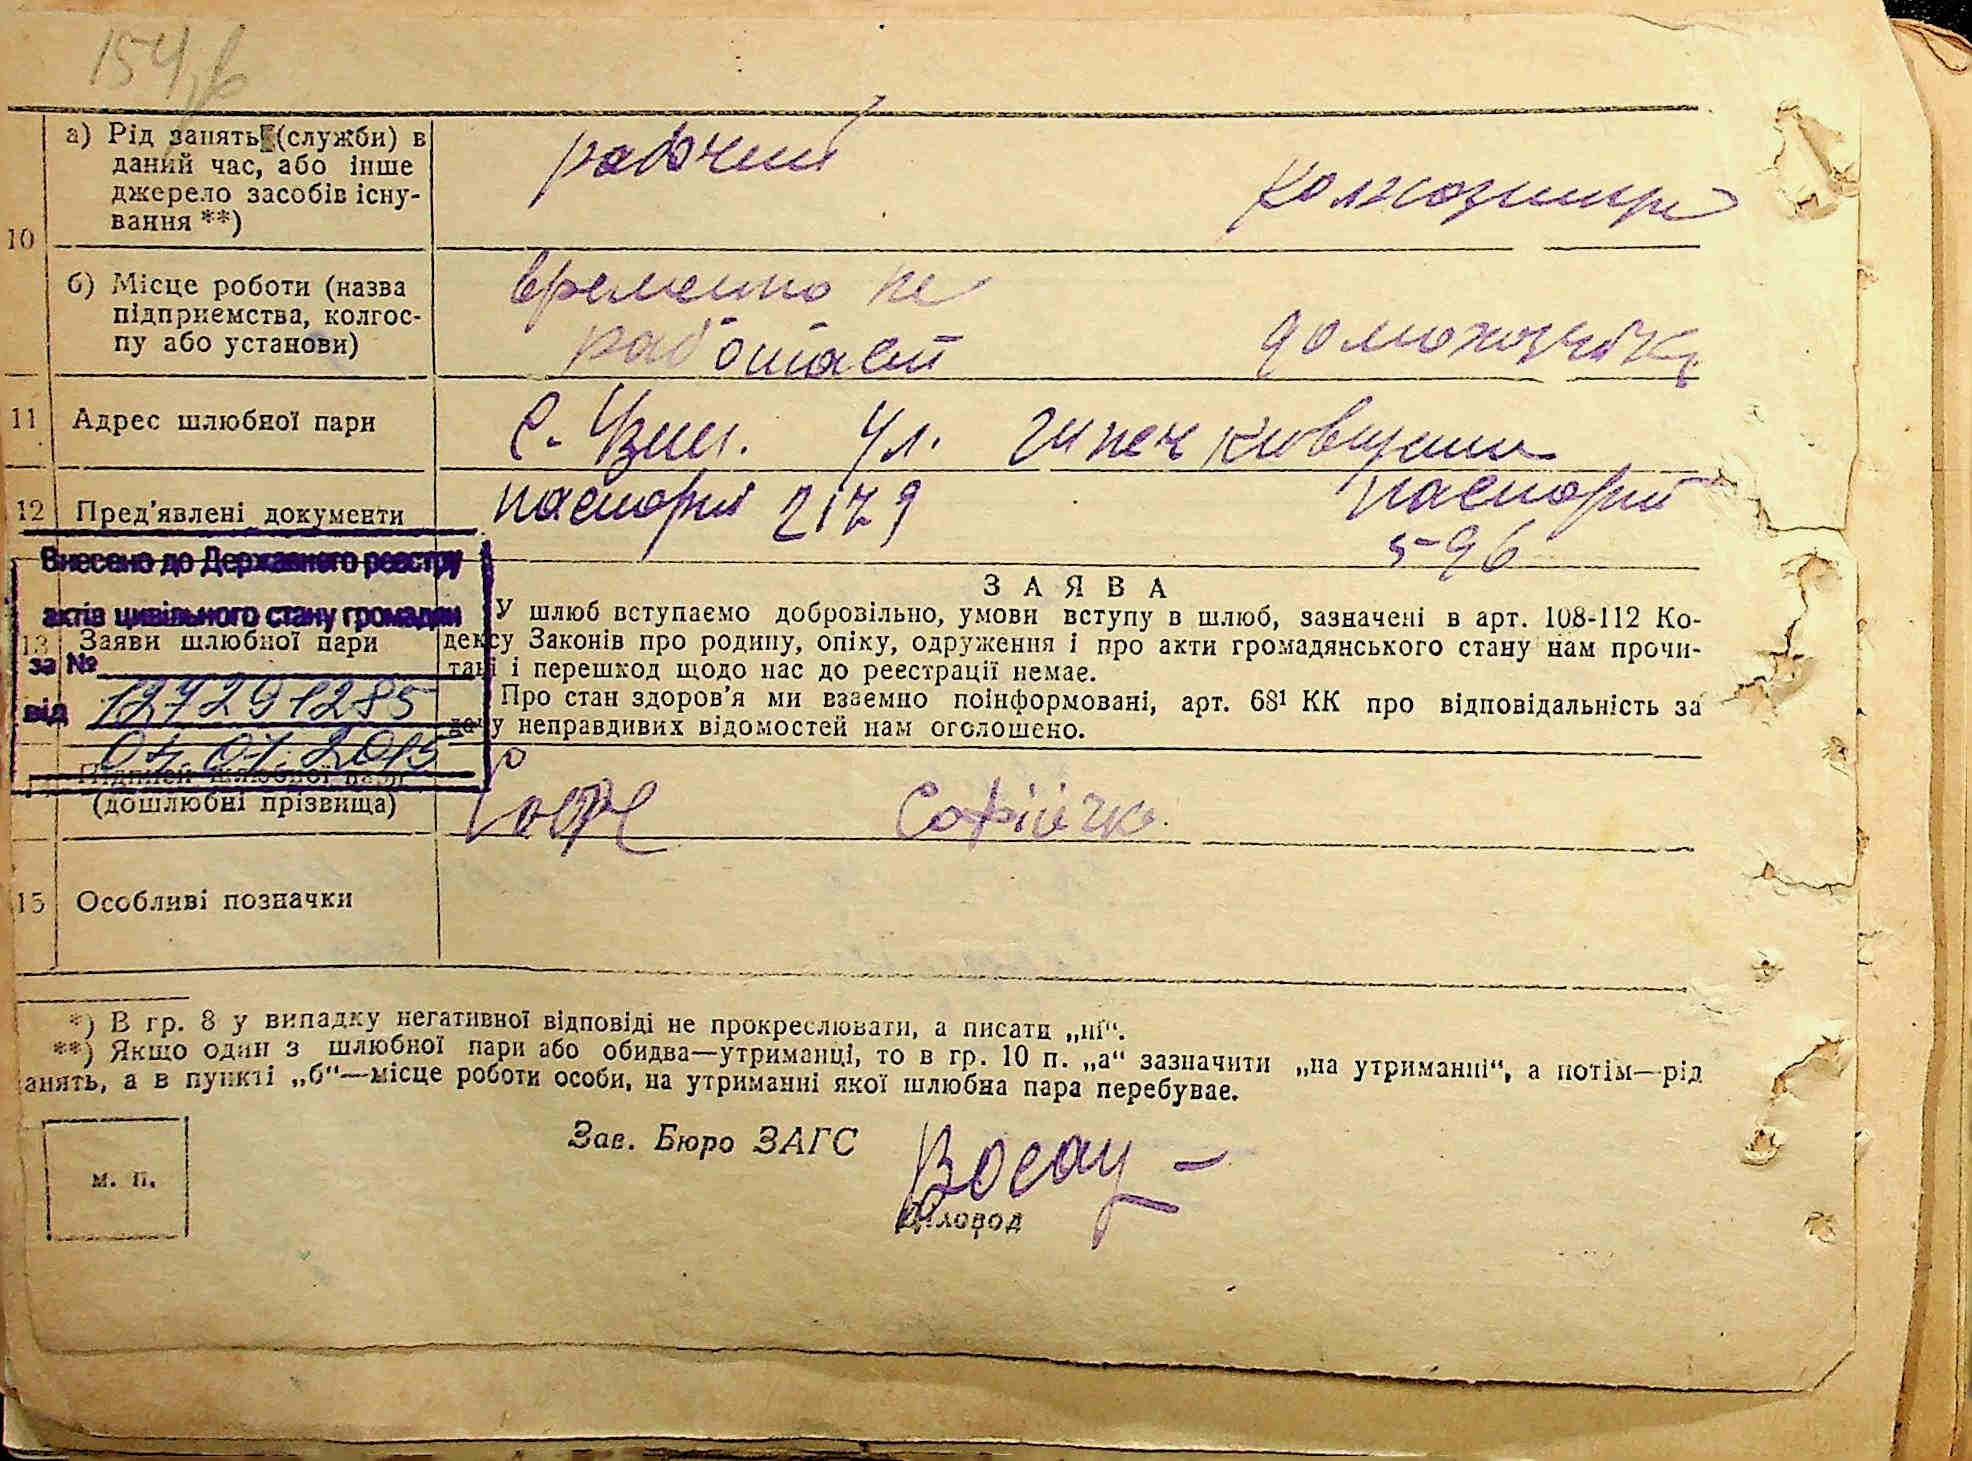 а) Рід занять (служби) в
даний час, або інше
джерело засобів існу-
вання **)
рабочий
10
б) Місце роботи (назва
підприємства, колгос-
пу або установи)
временно не
работает
домохозяйка
11 Адрес шлюбної пари
с. Узин. ул.
12 Пред'явлені документи
паспорт 2179
паспорт
596
Внесено до Державного реєстру
актів цивільного стану громадян
за №
127291285
від
04.07.2015
13 Заяви шлюбної пари
ЗАЯВА
У шлюб вступаємо добровільно, умови вступу в шлюб, зазначені в арт. 108-112 Ко-
дексу Законів про родину, опіку, одруження і про акти громадянського стану нам прочи-
тані і перешкод щодо нас до реєстрації немає.
Про стан здоров'я ми взаємно поінформовані, арт. 68¹ КК про відповідальність за
дачу неправдивих відомостей нам оголошено.
Підписи шлюбної пари
(дошлюбні прізвища)
Софійчк
15 Особливі позначки
*) В гр. 8 у випадку негативної відповіді не прокреслювати, а писати „ні“.
**) Якщо один з шлюбної пари або обидва—утриманці, то в гр. 10 п. „а“ зазначити „на утриманні“, а потім—рід
анять, а в пункті „б“—місце роботи особи, на утриманні якої шлюбна пара перебуває.
м. п.
Зав. Бюро ЗАГС
Діловод